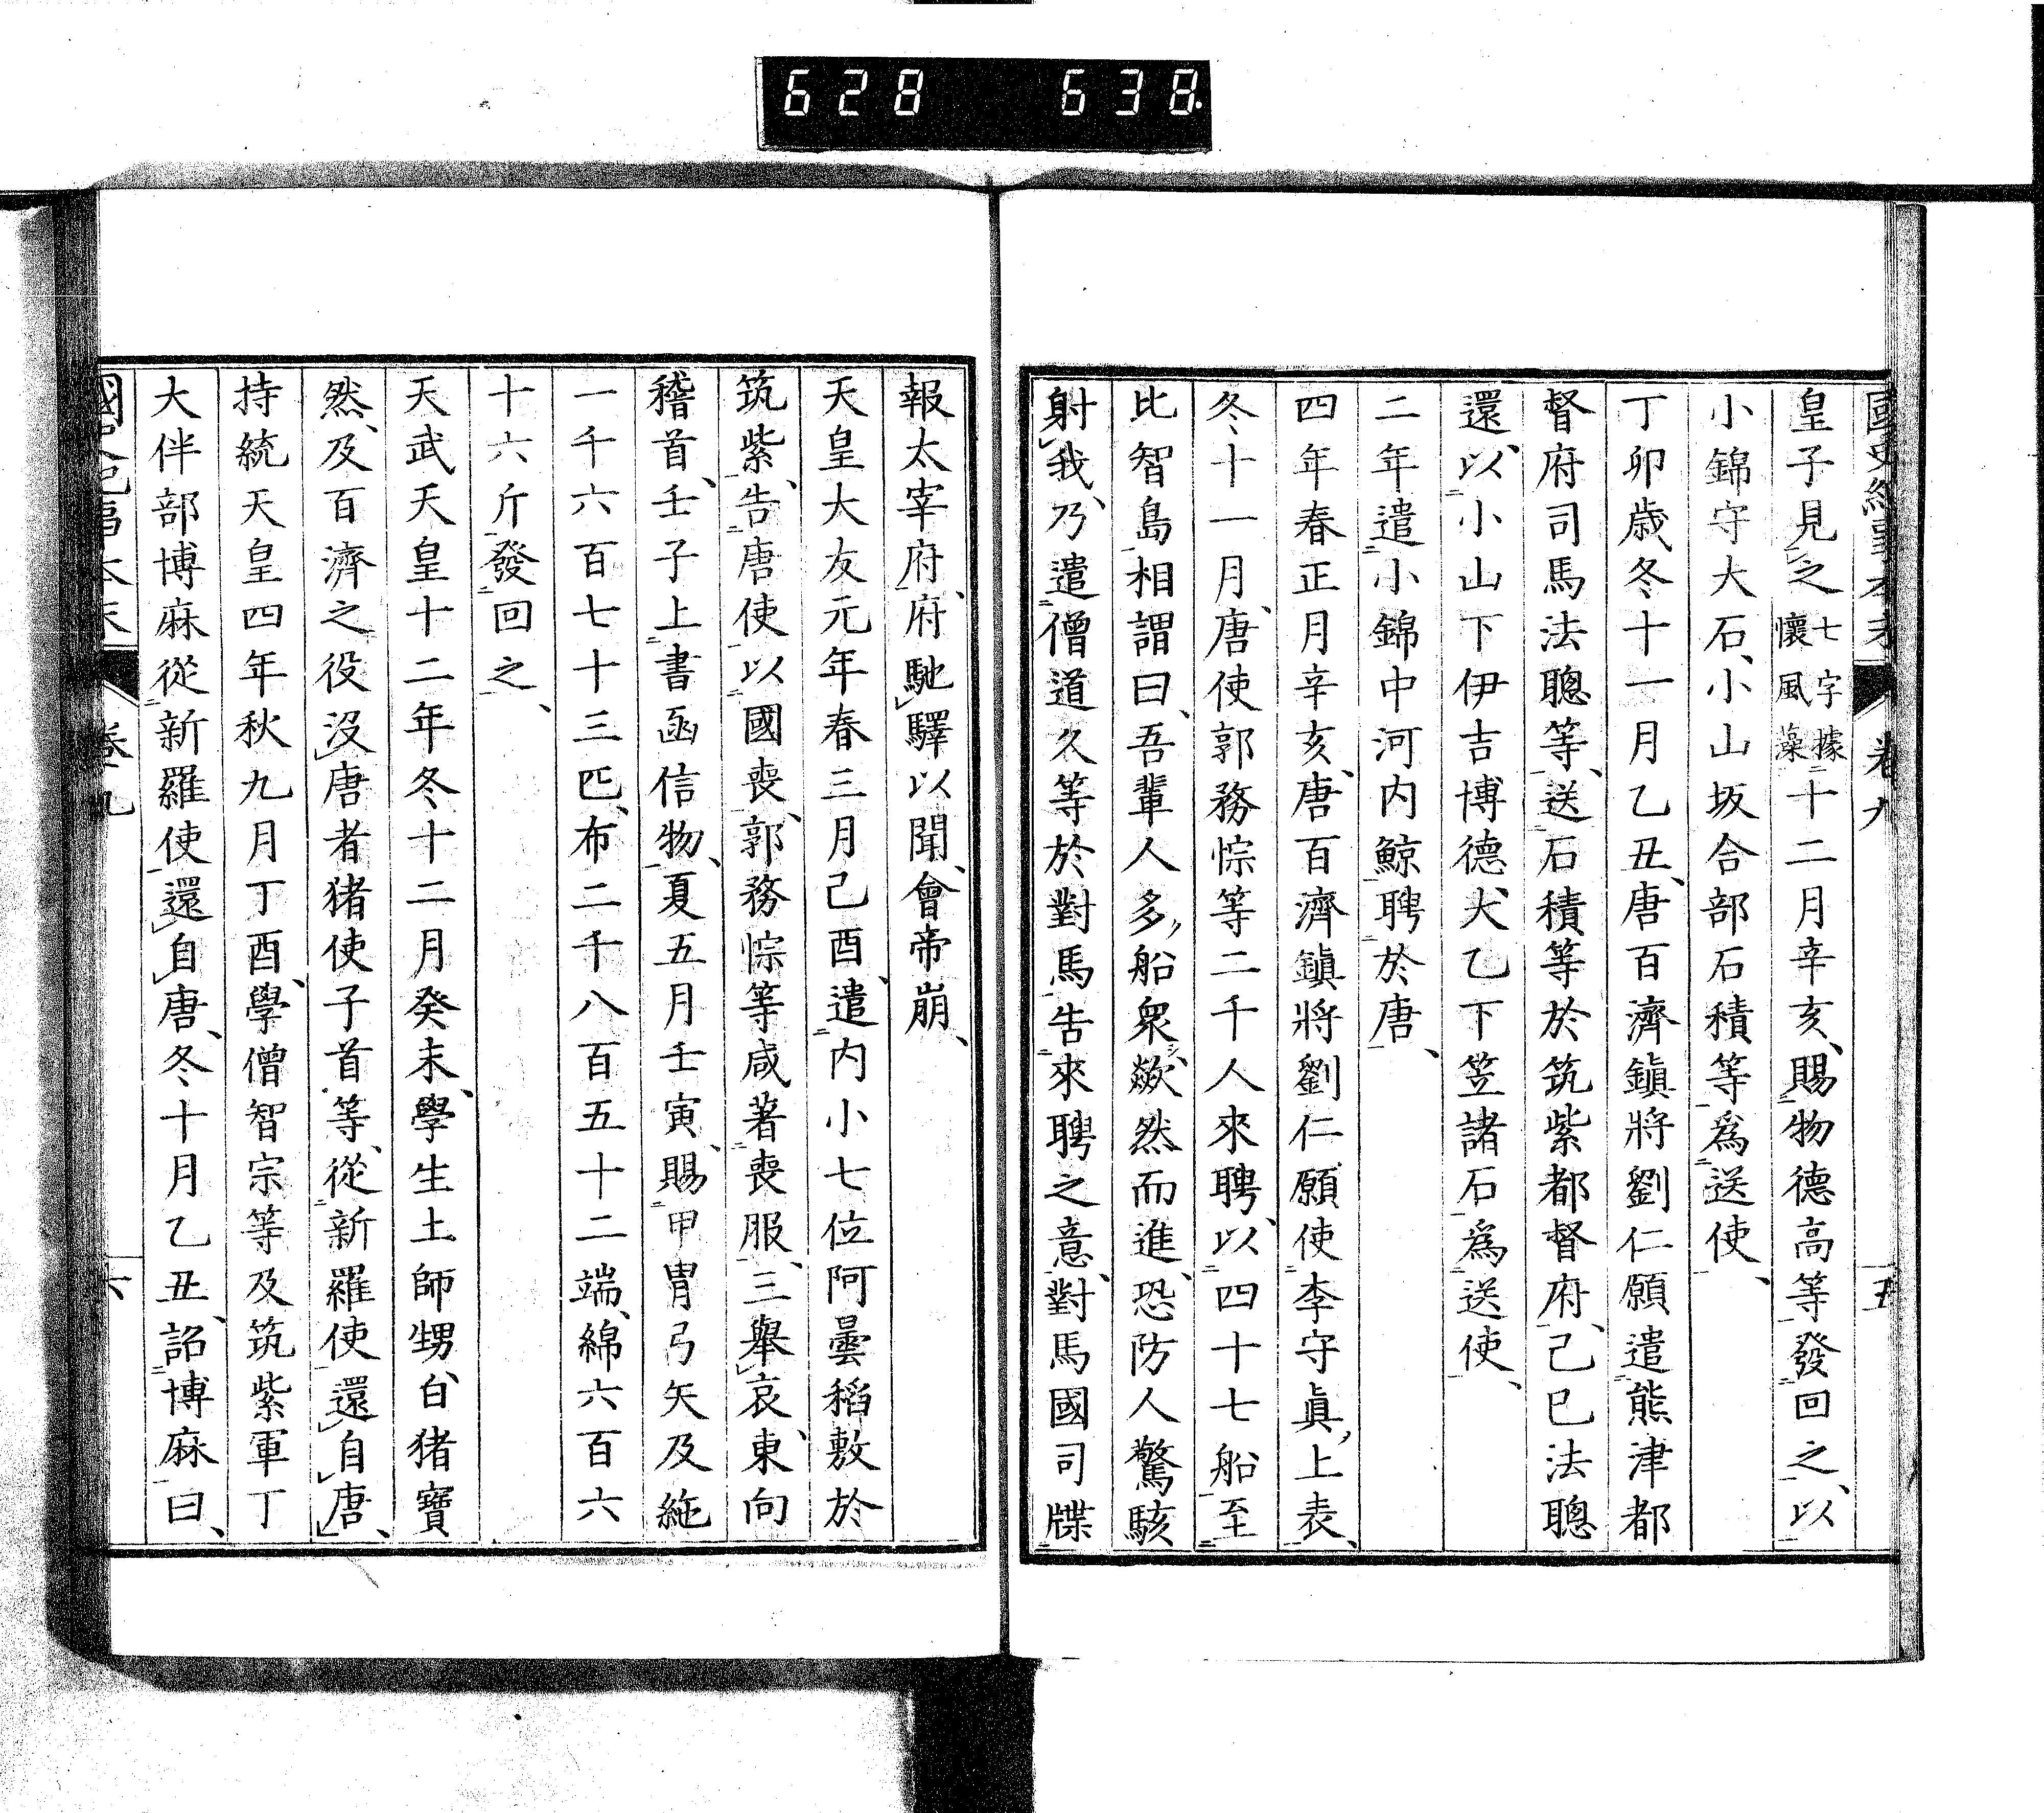 628 638
國史紀事本末 卷九 五
皇子見之七字據懷風藻十二月辛亥、賜物德高等發回之、以
小錦守大石、小山坂合部石積等爲送使、
丁卯歲冬十一月乙丑、唐百濟鎭將劉仁願遣熊津都
督府司馬法聰等、送石積等於筑紫都督府、己巳法聰
還、以小山下伊吉博德、大乙下笠諸石爲送使、
二年遣小錦中河內鯨聘於唐、
四年春正月辛亥、唐百濟鎭將劉仁願使李守眞、上表、
冬十一月、唐使郭務悰等二千人來聘、以四十七船至
比智島相謂曰、吾輩人多、船衆、歘然而進、恐防人驚駭
射我、乃遣僧道久等於對馬告來聘之意、對馬國司牒
報太宰府、府馳驛以聞、會帝崩、
天皇大友元年春三月己酉、遣內小七位阿曇稻敷於
筑紫、告唐使以國喪、郭務悰等咸著喪服、三擧哀、東向
稽首、壬子上書函信物、夏五月壬寅、賜甲冑弓矢及絁
一千六百七十三匹、布二千八百五十二端、綿六百六
十六斤發回之、
天武天皇十二年冬十二月癸未、學生土師甥、白猪寶
然、及百濟之役沒唐者猪使子首等、從新羅使還自唐、
持統天皇四年秋九月丁酉、學僧智宗等及筑紫軍丁
大伴部博麻從新羅使還自唐、冬十月乙丑、詔博麻曰、
國史紀事本末 卷九 六